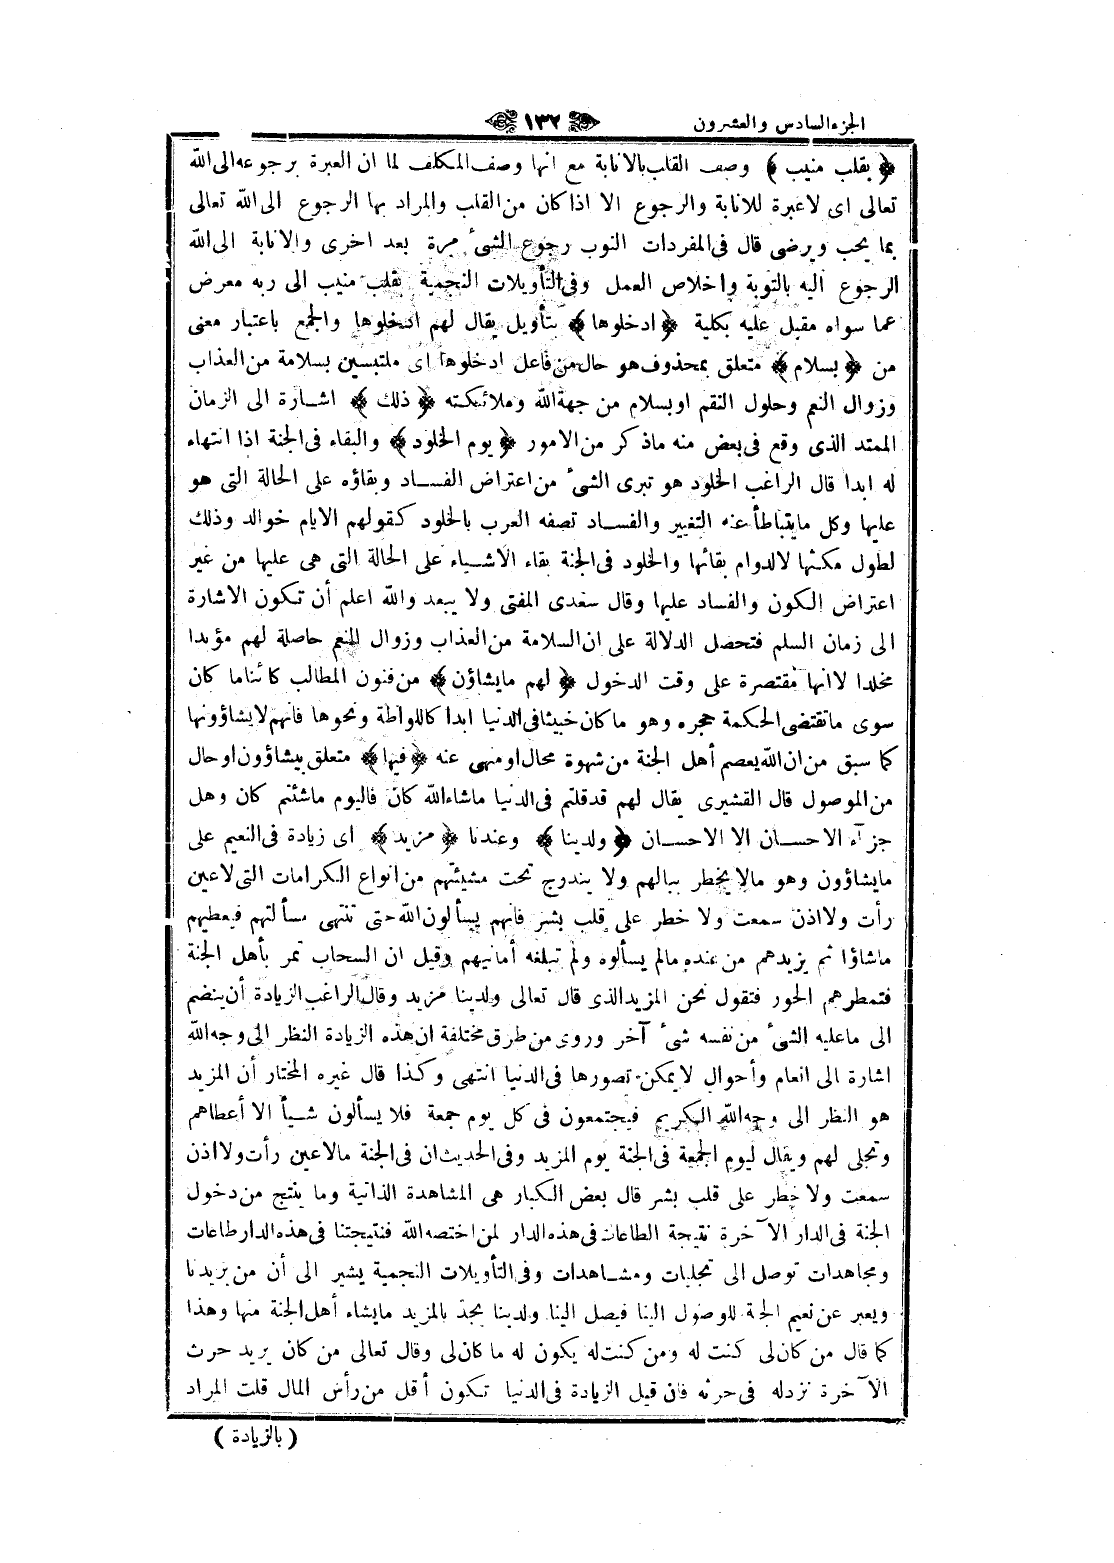 الجزء السادس والعشرون
١٣٢
﴿ بقلب منيب ﴾ وصف القلب بالانابة مع انها وصف المكلف لما ان العبرة برجوعه الى الله
تعالى اى لاعبرة للانابة والرجوع الا اذا كان من القلب والمراد بها الرجوع الى الله تعالى
بما يحب ويرضى قال فى المفردات النوب رجوع الشئ مرة بعد اخرى والانابة الى الله
الرجوع اليه بالتوبة واخلاص العمل وفى التأويلات النجمية بقلب منيب الى ربه معرض
عما سواه مقبل عليه بكلية ﴿ ادخلوها ﴾ بتأويل يقال لهم ادخلوها والجمع باعتبار معنى
من ﴿ بسلام ﴾ متعلق بمحذوف هو حال من فاعل ادخلوها اى ملتبسين بسلامة من العذاب
وزوال النعم وحلول النقم او بسلام من جهة الله وملائكته ﴿ ذلك ﴾ اشارة الى الزمان
الممتد الذى وقع فى بعض منه ماذكر من الامور ﴿ يوم الخلود ﴾ والبقاء فى الجنة اذا انتهاء
له ابدا قال الراغب الخلود هو تبرى الشئ من اعتراض الفساد وبقاؤه على الحالة التى هو
عليها وكل مايتباطأ عنه التغيير والفساد تصفه العرب بالخلود كقولهم الايام خوالد وذلك
لطول مكثها لالدوام بقائها والخلود فى الجنة بقاء الاشياء على الحالة التى هى عليها من غير
اعتراض الكون والفساد عليها وقال سعدى المفتى ولا يبعد والله اعلم أن تكون الاشارة
الى زمان السلم فتحصل الدلالة على ان السلامة من العذاب وزوال النعم حاصلة لهم مؤبدا
مخلدا لاانها مقتصرة على وقت الدخول ﴿ لهم مايشاؤن ﴾ من فنون المطالب كائناما كان
سوى ماتقتضى الحكمة حجره وهو ماكان خبيثا فى الدنيا ابدا كاللواطة ونحوها فانهم لايشاؤونها
كما سبق من ان الله يعصم أهل الجنة من شهوة محال او منهى عنه ﴿ فيها ﴾ متعلق بيشاؤون او حال
من الموصول قال القشيرى يقال لهم قدقلتم فى الدنيا ماشاء الله كان فاليوم ماشئتم كان وهل
جزآء الاحسان الا الاحسان ﴿ ولدينا ﴾ وعندنا ﴿ مزيد ﴾ اى زيادة فى النعيم على
مايشاؤون وهو مالايخطر ببالهم ولا يندرج تحت مشيئتهم من انواع الكرامات التى لاعين
رأت ولااذن سمعت ولا خطر على قلب بشر فانهم يسألون الله حتى تنتهى مسألتهم فيعطيهم
ماشاؤا ثم يزيدهم من عنده مالم يسألوه ولم تبلغه أمانيهم وقيل ان السحاب تمر بأهل الجنة
فتمطرهم الحور فتقول نحن المزيد الذى قال تعالى ولدينا مزيد وقال الراغب الزيادة أن ينضم
الى ماعليه الشئ من نفسه شئ آخر وروى من طرق مختلفة ان هذه الزيادة النظر الى وجه الله
اشارة الى انعام وأحوال لايمكن تصورها فى الدنيا انتهى وكذا قال غيره المختار أن المزيد
هو النظر الى وجه الله الكريم فيجتمعون فى كل يوم جمعة فلا يسألون شيأ الا أعطاهم
وتجلى لهم ويقال ليوم الجمعة فى الجنة يوم المزيد وفى الحديث ان فى الجنة مالاعين رأت ولااذن
سمعت ولا خطر على قلب بشر قال بعض الكبار هى المشاهدة الذاتية وما ينتج من دخول
الجنة فى الدار الآخرة نتيجة الطاعات فى هذه الدار لمن اختصه الله فنتيجتنا فى هذه الدار طاعات
ومجاهدات توصل الى تجليات ومشاهدات وفى التأويلات النجمية يشير الى أن من يريدنا
ويعبر عن نعيم الجنة للوصول الينا فيصل الينا ولدينا يجذ بالمزيد مايشاء أهل الجنة منها وهذا
كما قال من كان لى كنت له ومن كنت له يكون له ما كان لى وقال تعالى من كان يريد حرث
الآخرة نزدله فى حرثه فان قيل الزيادة فى الدنيا تكون أقل من رأس المال قلت المراد
( بالزيادة )